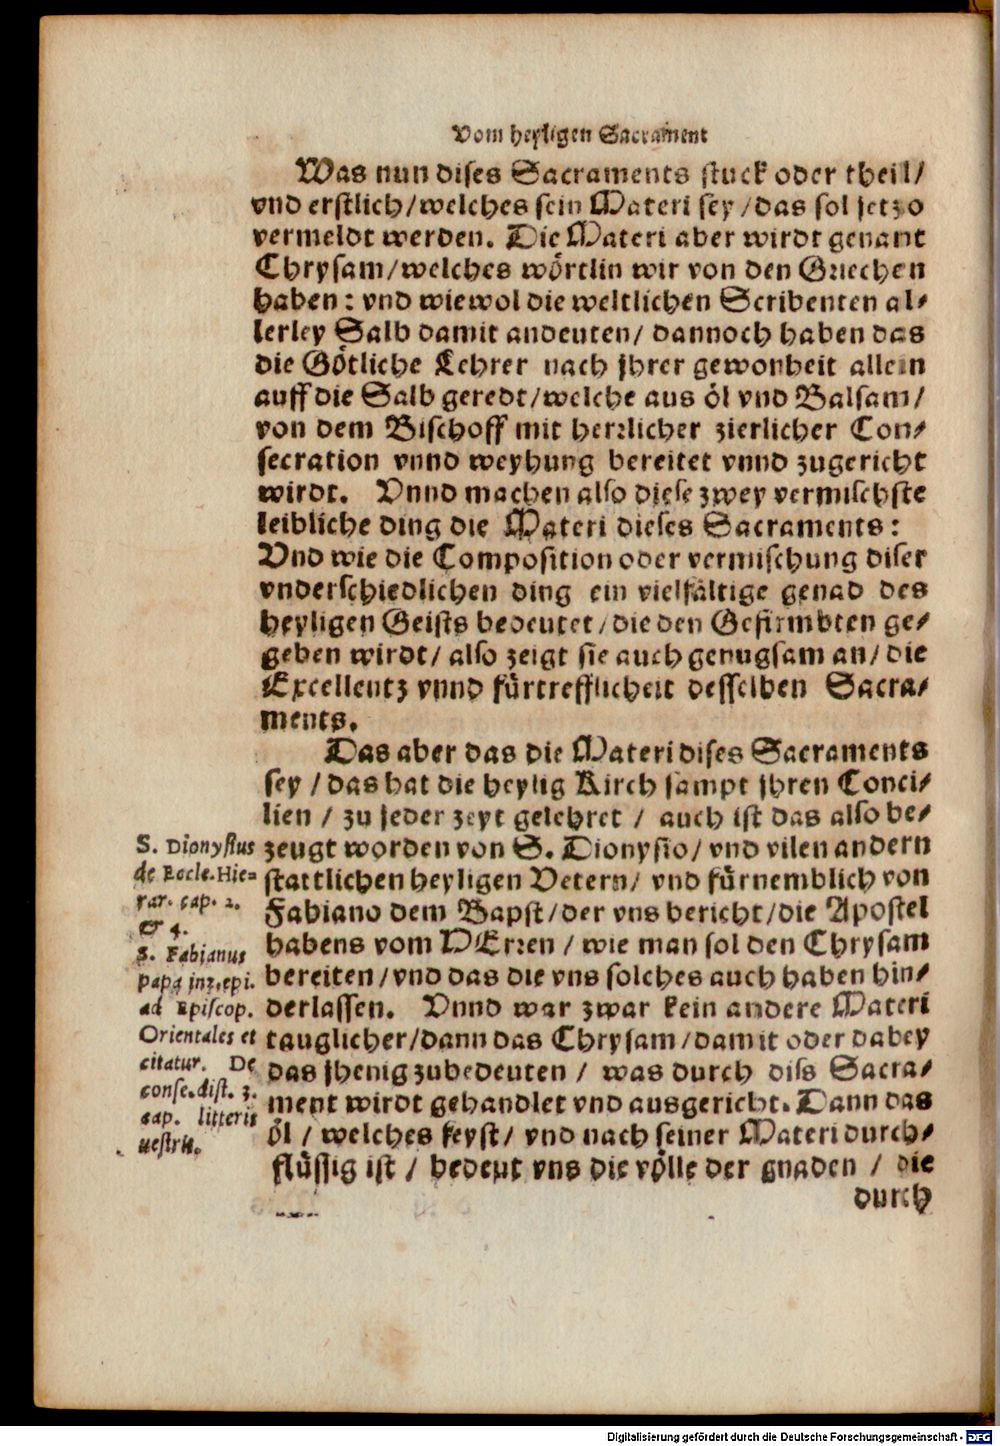 Vom heyligen Sacrament
Was nun dises Sacraments stuck oder theil/
vnd erstlich/welches sein Materi sey/das sol jetzo
vermeldt werden. Die Materi aber wirdt genant
Chrysam/welches wörtlin wir von den Griechen
haben: vnd wiewol die weltlichen Scribenten al⸗
lerley Salb damit andeuten/ dannoch haben das
die Götliche Lehrer nach jhrer gewonheit allein
auff die Salb geredt/welche aus öl vnd Balsam/
von dem Bischoff mit herrlicher zierlicher Con⸗
secration vnnd weyhung bereitet vnnd zugericht
wirdt. Vnnd machen also diese zwey vermischste
leibliche ding die Materi dieses Sacraments:
Vnd wie die Composition oder vermischung diser
vnderschiedlichen ding ein vielfältige genad des
heyligen Geists bedeutet/die den Gefirmbten ge⸗
geben wirdt/ also zeigt sie auch genugsam an/ die
Excellentz vnnd fürtrefflicheit desselben Sacra⸗
ments.
Das aber das die Materi dises Sacraments
sey / das hat die heylig Kirch sampt jhren Conci⸗
lien / zu jeder zeyt gelehret / auch ist das also be⸗
zeugt worden von S. Dionysio/ vnd vilen andern
stattlichen heyligen Vetern/ vnd fürnemblich von
Fabiano dem Bapst/der vns bericht/die Apostel
habens vom HErren / wie man sol den Chrysam
bereiten/vnd das die vns solches auch haben hin⸗
derlassen. Vnnd war zwar kein andere Materi
tauglicher/dann das Chrysam/damit oder dabey
das jhenig zubedeuten / was durch diß Sacra⸗
ment wirdt gehandlet vnd ausgericht. Dann das
öl / welches feyst/ vnd nach seiner Materi durch⸗
flüssig ist / bedeut vns die völle der gnaden / die
durch
S. Dionysius
de Eccle. Hie=
rar. cap. 2.
& 4.
S. Fabianus
Papa in 2. epi.
ad Episcop.
Orientales et
citatur. De
conse. dist. 3.
cap. litteris
uestris.
Digitalisierung gefördert durch die Deutsche Forschungsgemeinschaft - DFG